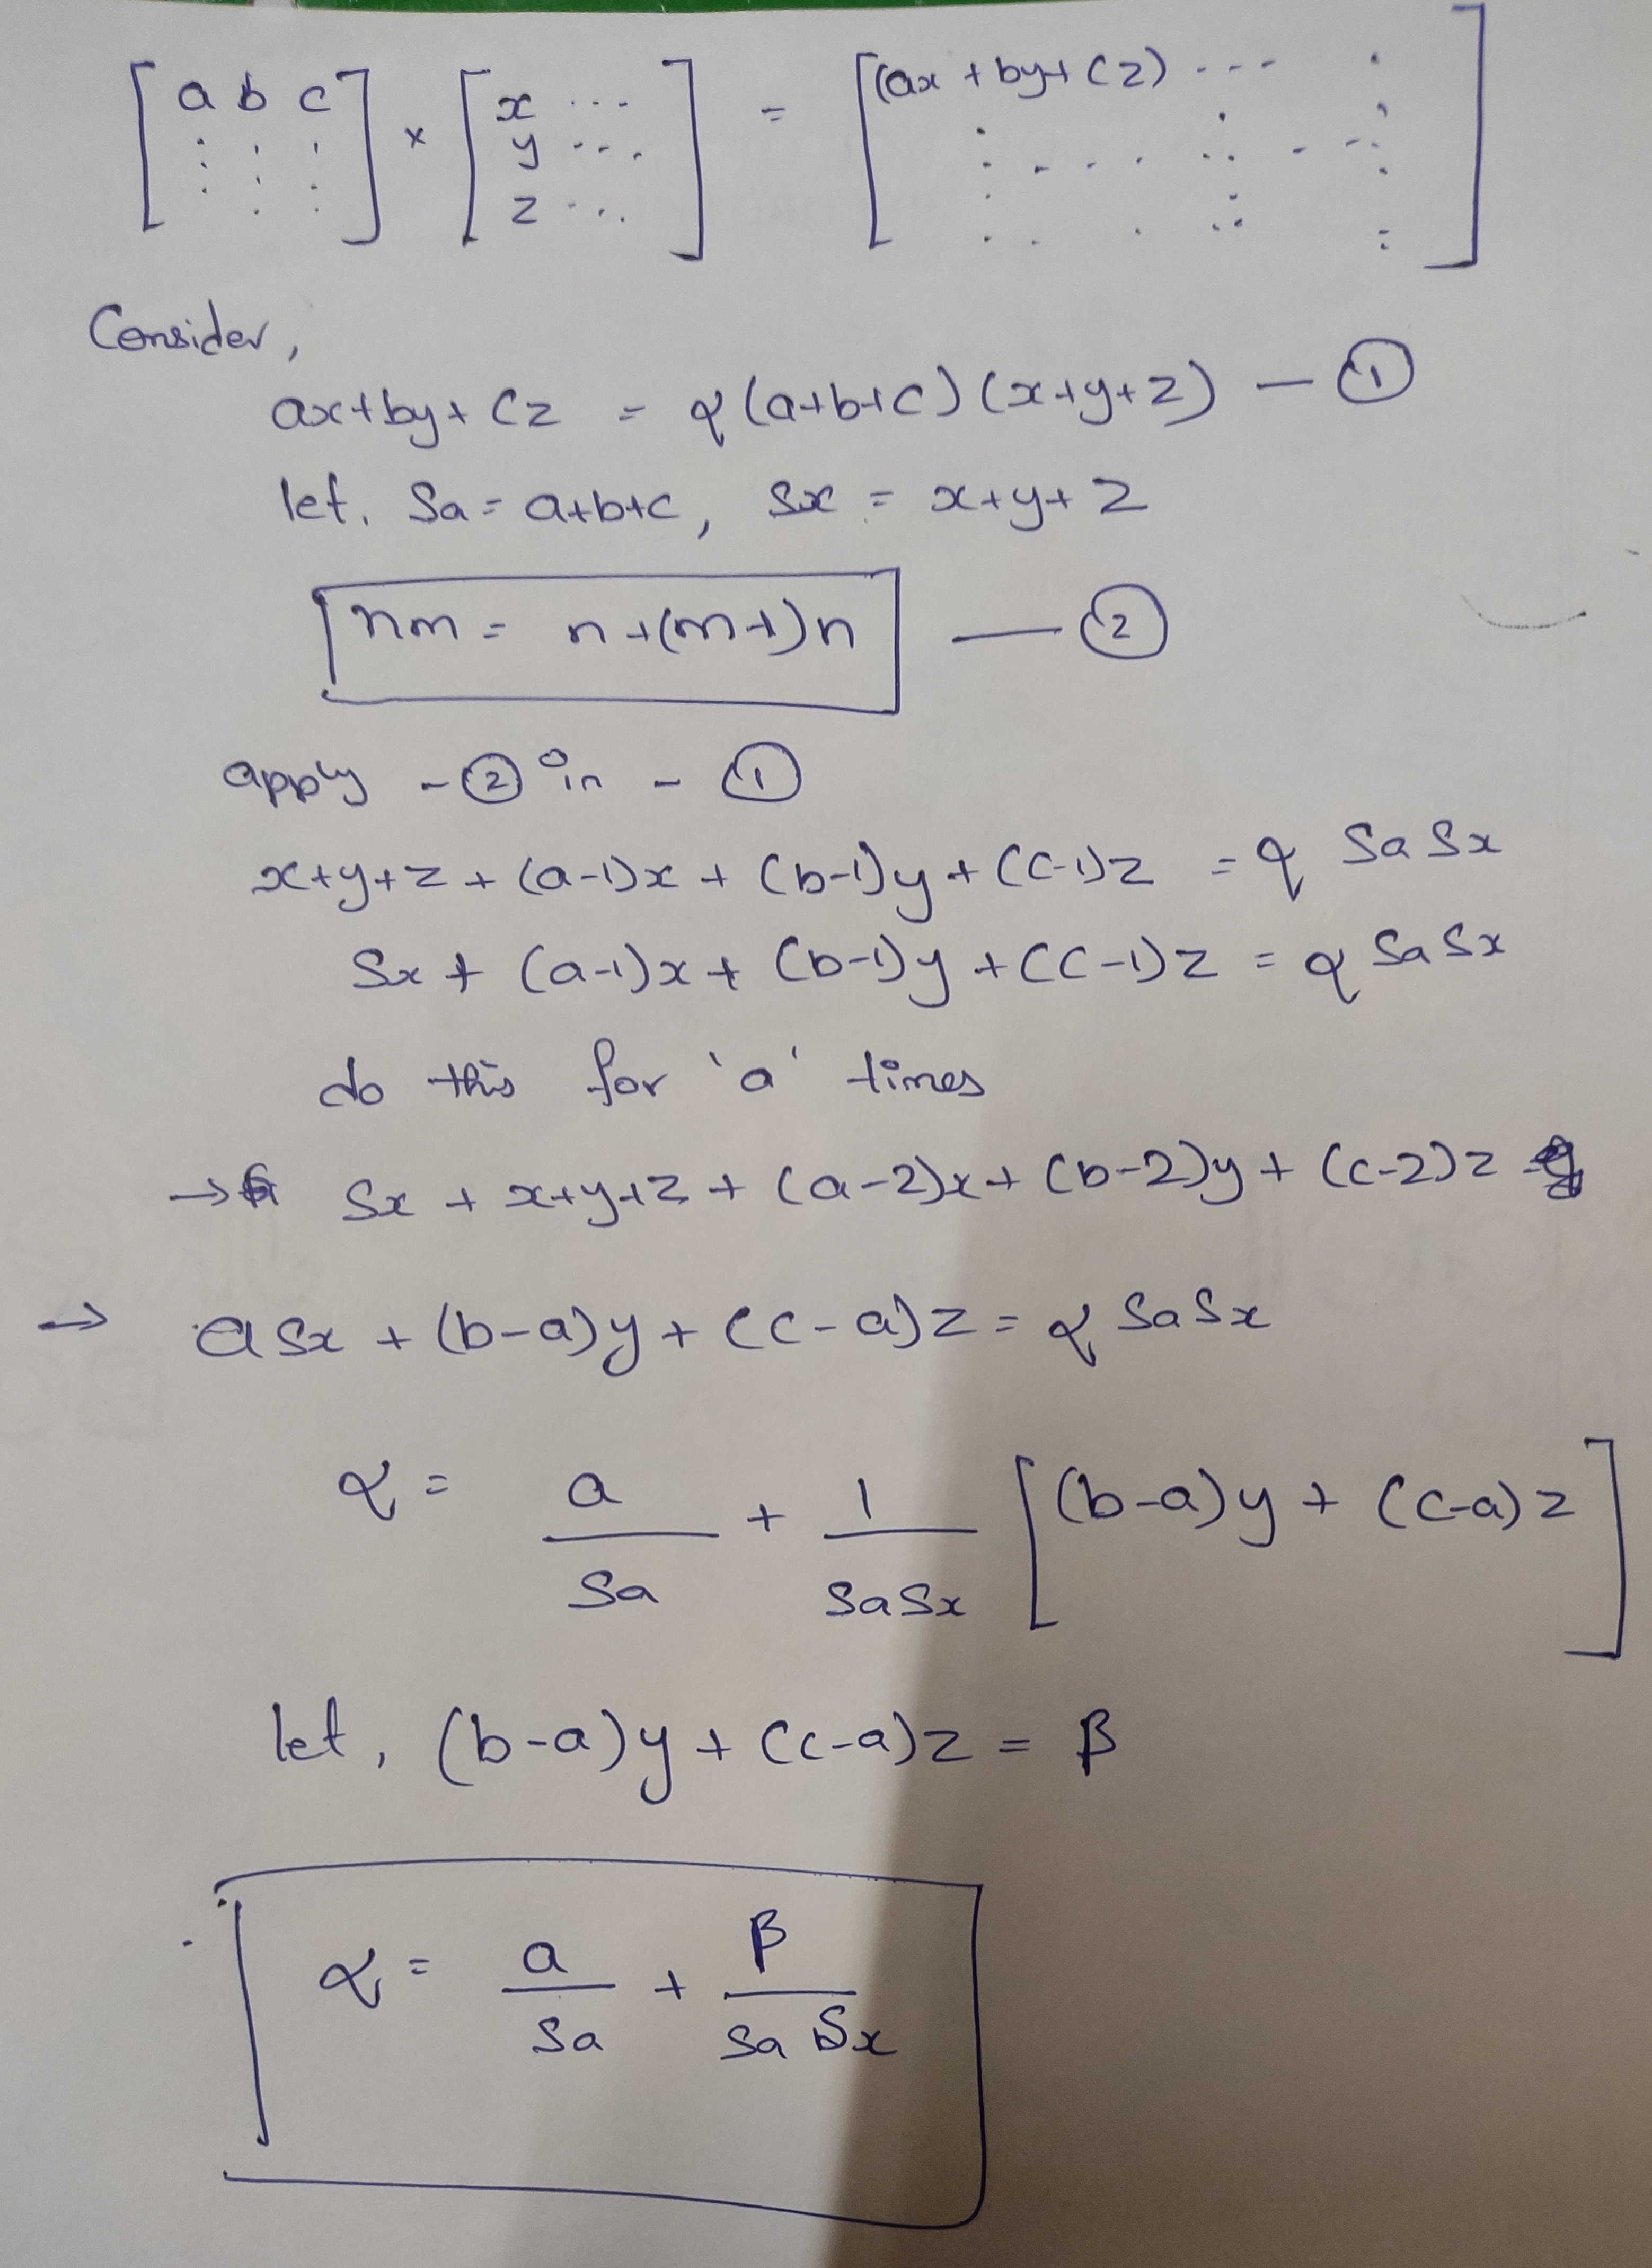 [a b c
: : :
: : :] × [x ...
y ...
z ...] = [(ax + by + cz) ...
: . . . .]
Consider,
ax+by+cz = α(a+b+c)(x+y+z) — ①
let, Sa = a+b+c, Sx = x+y+z
nm = n+(m+1)n — ②
apply - ② in - ①
x+y+z+(a-1)x+(b-1)y+(c-1)z = α SaSx
Sx+(a-1)x+(b-1)y+(c-1)z = α SaSx
do this for 'a' times
→ Sx + x+y+z+(a-2)x+(b-2)y+(c-2)z
→ aSx+(b-a)y+(c-a)z = α SaSx
α = a/Sa + 1/SaSx [(b-a)y+(c-a)z]
let, (b-a)y+(c-a)z = β
α = a/Sa + β/SaSx